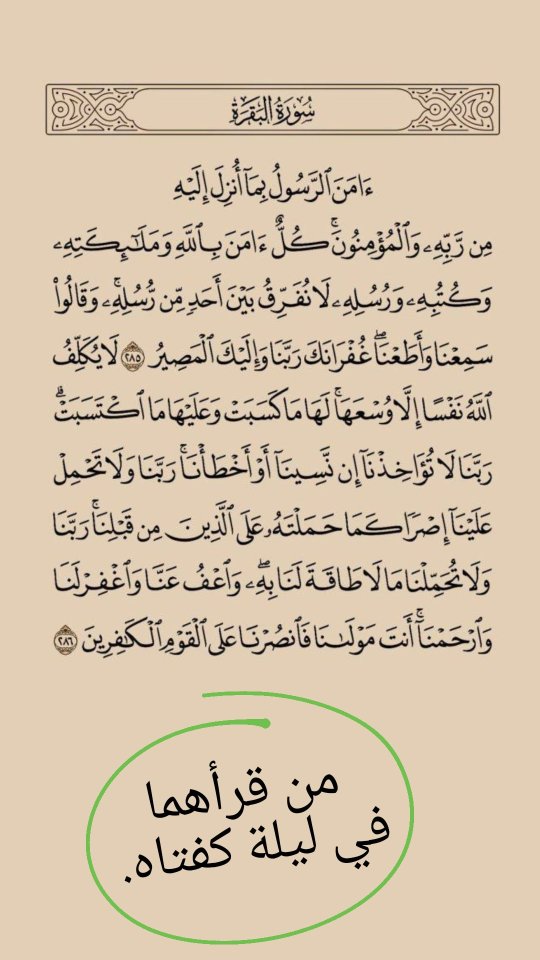 سُورَةُ البَقَرَةِ
ءَامَنَ ٱلرَّسُولُ بِمَآ أُنزِلَ إِلَيْهِ
مِن رَّبِّهِۦ وَٱلْمُؤْمِنُونَ ۚ كُلٌّ ءَامَنَ بِٱللَّهِ وَمَلَـٰٓئِكَتِهِۦ
وَكُتُبِهِۦ وَرُسُلِهِۦ لَا نُفَرِّقُ بَيْنَ أَحَدٍ مِّن رُّسُلِهِۦ ۚ وَقَالُوا۟
سَمِعْنَا وَأَطَعْنَا ۖ غُفْرَانَكَ رَبَّنَا وَإِلَيْكَ ٱلْمَصِيرُ ٢٨٥ لَا يُكَلِّفُ
ٱللَّهُ نَفْسًا إِلَّا وُسْعَهَا ۚ لَهَا مَا كَسَبَتْ وَعَلَيْهَا مَا ٱكْتَسَبَتْ ۗ
رَبَّنَا لَا تُؤَاخِذْنَآ إِن نَّسِينَآ أَوْ أَخْطَأْنَا ۚ رَبَّنَا وَلَا تَحْمِلْ
عَلَيْنَآ إِصْرًا كَمَا حَمَلْتَهُۥ عَلَى ٱلَّذِينَ مِن قَبْلِنَا ۚ رَبَّنَا
وَلَا تُحَمِّلْنَا مَا لَا طَاقَةَ لَنَا بِهِۦ ۖ وَٱعْفُ عَنَّا وَٱغْفِرْ لَنَا
وَٱرْحَمْنَآ ۚ أَنتَ مَوْلَىٰنَا فَٱنصُرْنَا عَلَى ٱلْقَوْمِ ٱلْكَـٰفِرِينَ ٢٨٦
من قرأهما
في ليلة كفتاه.